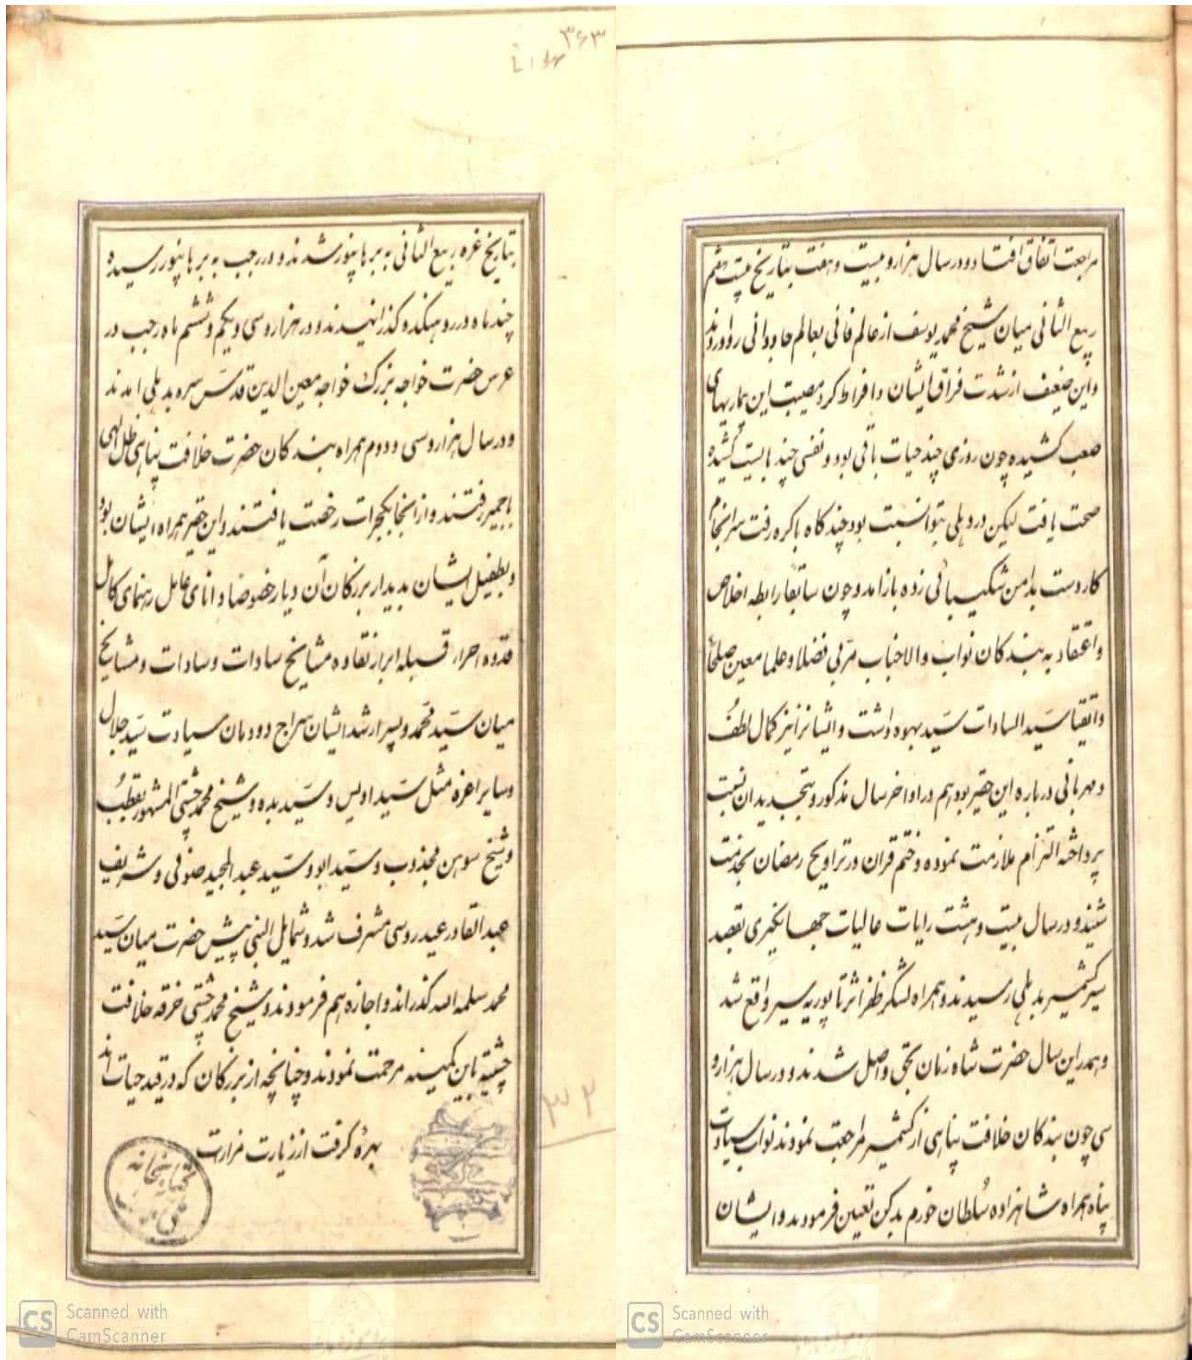 مراجعت اتفاق افتاد و در سال هزار و بیست و هفت بتاریخ بیست هشتم
ربیع الثانی میان شیخ محمد یوسف از عالم فانی بعالم جاودانی رو آوردند
و این ضعیف از شدت فراق ایشان و افراط کرد مصیبت این بماریهای
صعب کشیده چون روزی چند حیات باقی بود و نفسی چند بایست کشید
صحت یافت لیکن در دهلی نتوانست بود چند گاه باکره رفت سرانجام
کار دست بدامن شکیبائی زده باز آمد و چون سابقا رابطه اخلاص
و اعتقاد به بندگان نواب والاجناب مربی فضلا و علما معین صلحا
و اتقیا سید السادات سید بهوه داشت و ایشانرا نیز کمال لطف
و مهربانی درباره این حقیر بود هم در اواخر سال مذکور و بتجدید آن نسبت
پرداخته التزام ملازمت نموده و ختم قران در تراویح رمضان بخدمت
شنید و در سال بیست و هشت رایات عالیات جهانگیری بقصد
سیر کشمیر بدهلی رسیدند و همراه لشکر ظفر اثر تا پور به سیر واقع شد
و همدرین سال حضرت شاه زمان بحق واصل شدند و در سال هزار و
سی چون بندگان خلافت پناهی از کشمیر مراجعت نمودند نواب سیادت
پناه همراه شاهزاده سُلطان خورم بدکن تعین فرمودند و ایشان
۳۶۳
بتاریخ غره ربیع الثانی به برهانپور شدند و در رجب به برهانپور رسیده
چند ماه در روهنکده گذرانیدند و در هزار و سی و یکم و ششم ماه رجب در
عرس حضرت خواجه بزرگ خواجه معین الدین قدس سره بدهلی امدند
و در سال هزار و سی و دوم همراه بندگان حضرت خلافت پناهی ظل الهی
باجمیر رفتند و از آنجا بکجرات رخصت یافتند و این حقیر همراه ایشان بود
و بطفیل ایشان بدیدار بزرگان آن دیار خصوصا دانای عامل رهنمای کامل
قدوه احرار قبله ابرار نقاوه مشایخ سادات و سادات و مشایخ
میان سید محمد و پسر ارشد ایشان سراج دودمان سیادت سید جلال
و سایر اعزه مثل سید اویس و سید بده و شیخ محمد چشتی المشهور بقطب
و شیخ سوهن مجذوب و سید ابو و سید عبد المجید صوفی و شریف
عبد القادر عیدروسی مشرف شد و شمایل النبی پیش حضرت میان سید
محمد سلمه الله گذراند و اجازه هم فرمودند و شیخ محمد چشتی خرقه خلافت
چشتیه باین کمینه مرحمت نمودند و چنانچه از بزرگان که در قید حیات اند
بهره گرفت از زیارت مزارت
۳۲
کتابخانه
Scanned with
CamScanner
Scanned with
CamScanner